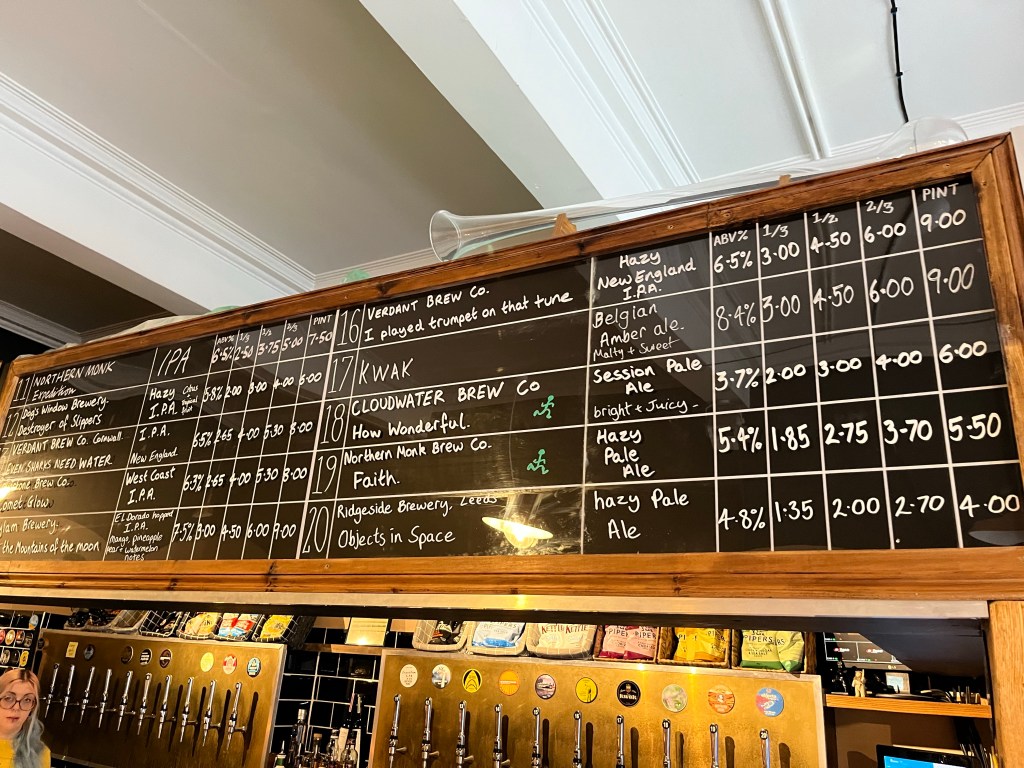 ABV% 1/3 1/2 2/3 PINT
11 NORTHERN MONK IPA 2.50 3.75 5.00 7.50
12 Dog's Window Brewery. Hazy I.P.A. 5.8% 2.00 3.00 4.00 6.00
Destroyer of Slippers
VERDANT BREW CO. Cornwall. I.P.A. 6.5% 2.65 4.00 5.30 8.00
EVEN SHARKS NEED WATER New England
Brew Co. West Coast I.P.A. 6.3% 2.65 4.00 5.30 8.00
Comet Glow
Brewery. El Dorado hopped I.P.A. 7.5% 3.00 4.50 6.00 9.00
the Mountains of the moon Mango, pineapple
watermelon
notes
ABV% 1/3 1/2 2/3 PINT
16 VERDANT BREW CO. Hazy 6.5% 3.00 4.50 6.00 9.00
I played trumpet on that tune New England
I.P.A.
17 KWAK Belgian 8.4% 3.00 4.50 6.00 9.00
Amber ale.
Malty + Sweet
18 CLOUDWATER BREW CO Session Pale 3.7% 2.00 3.00 4.00 6.00
How Wonderful. Ale
bright + Juicy
19 Northern Monk Brew Co. Hazy 5.4% 1.85 2.75 3.70 5.50
Faith. Pale
Ale
20 Ridgeside Brewery, Leeds hazy Pale 4.8% 1.35 2.00 2.70 4.00
Objects in Space Ale
KETTLE
PIPERS
PIPERS
KWAK